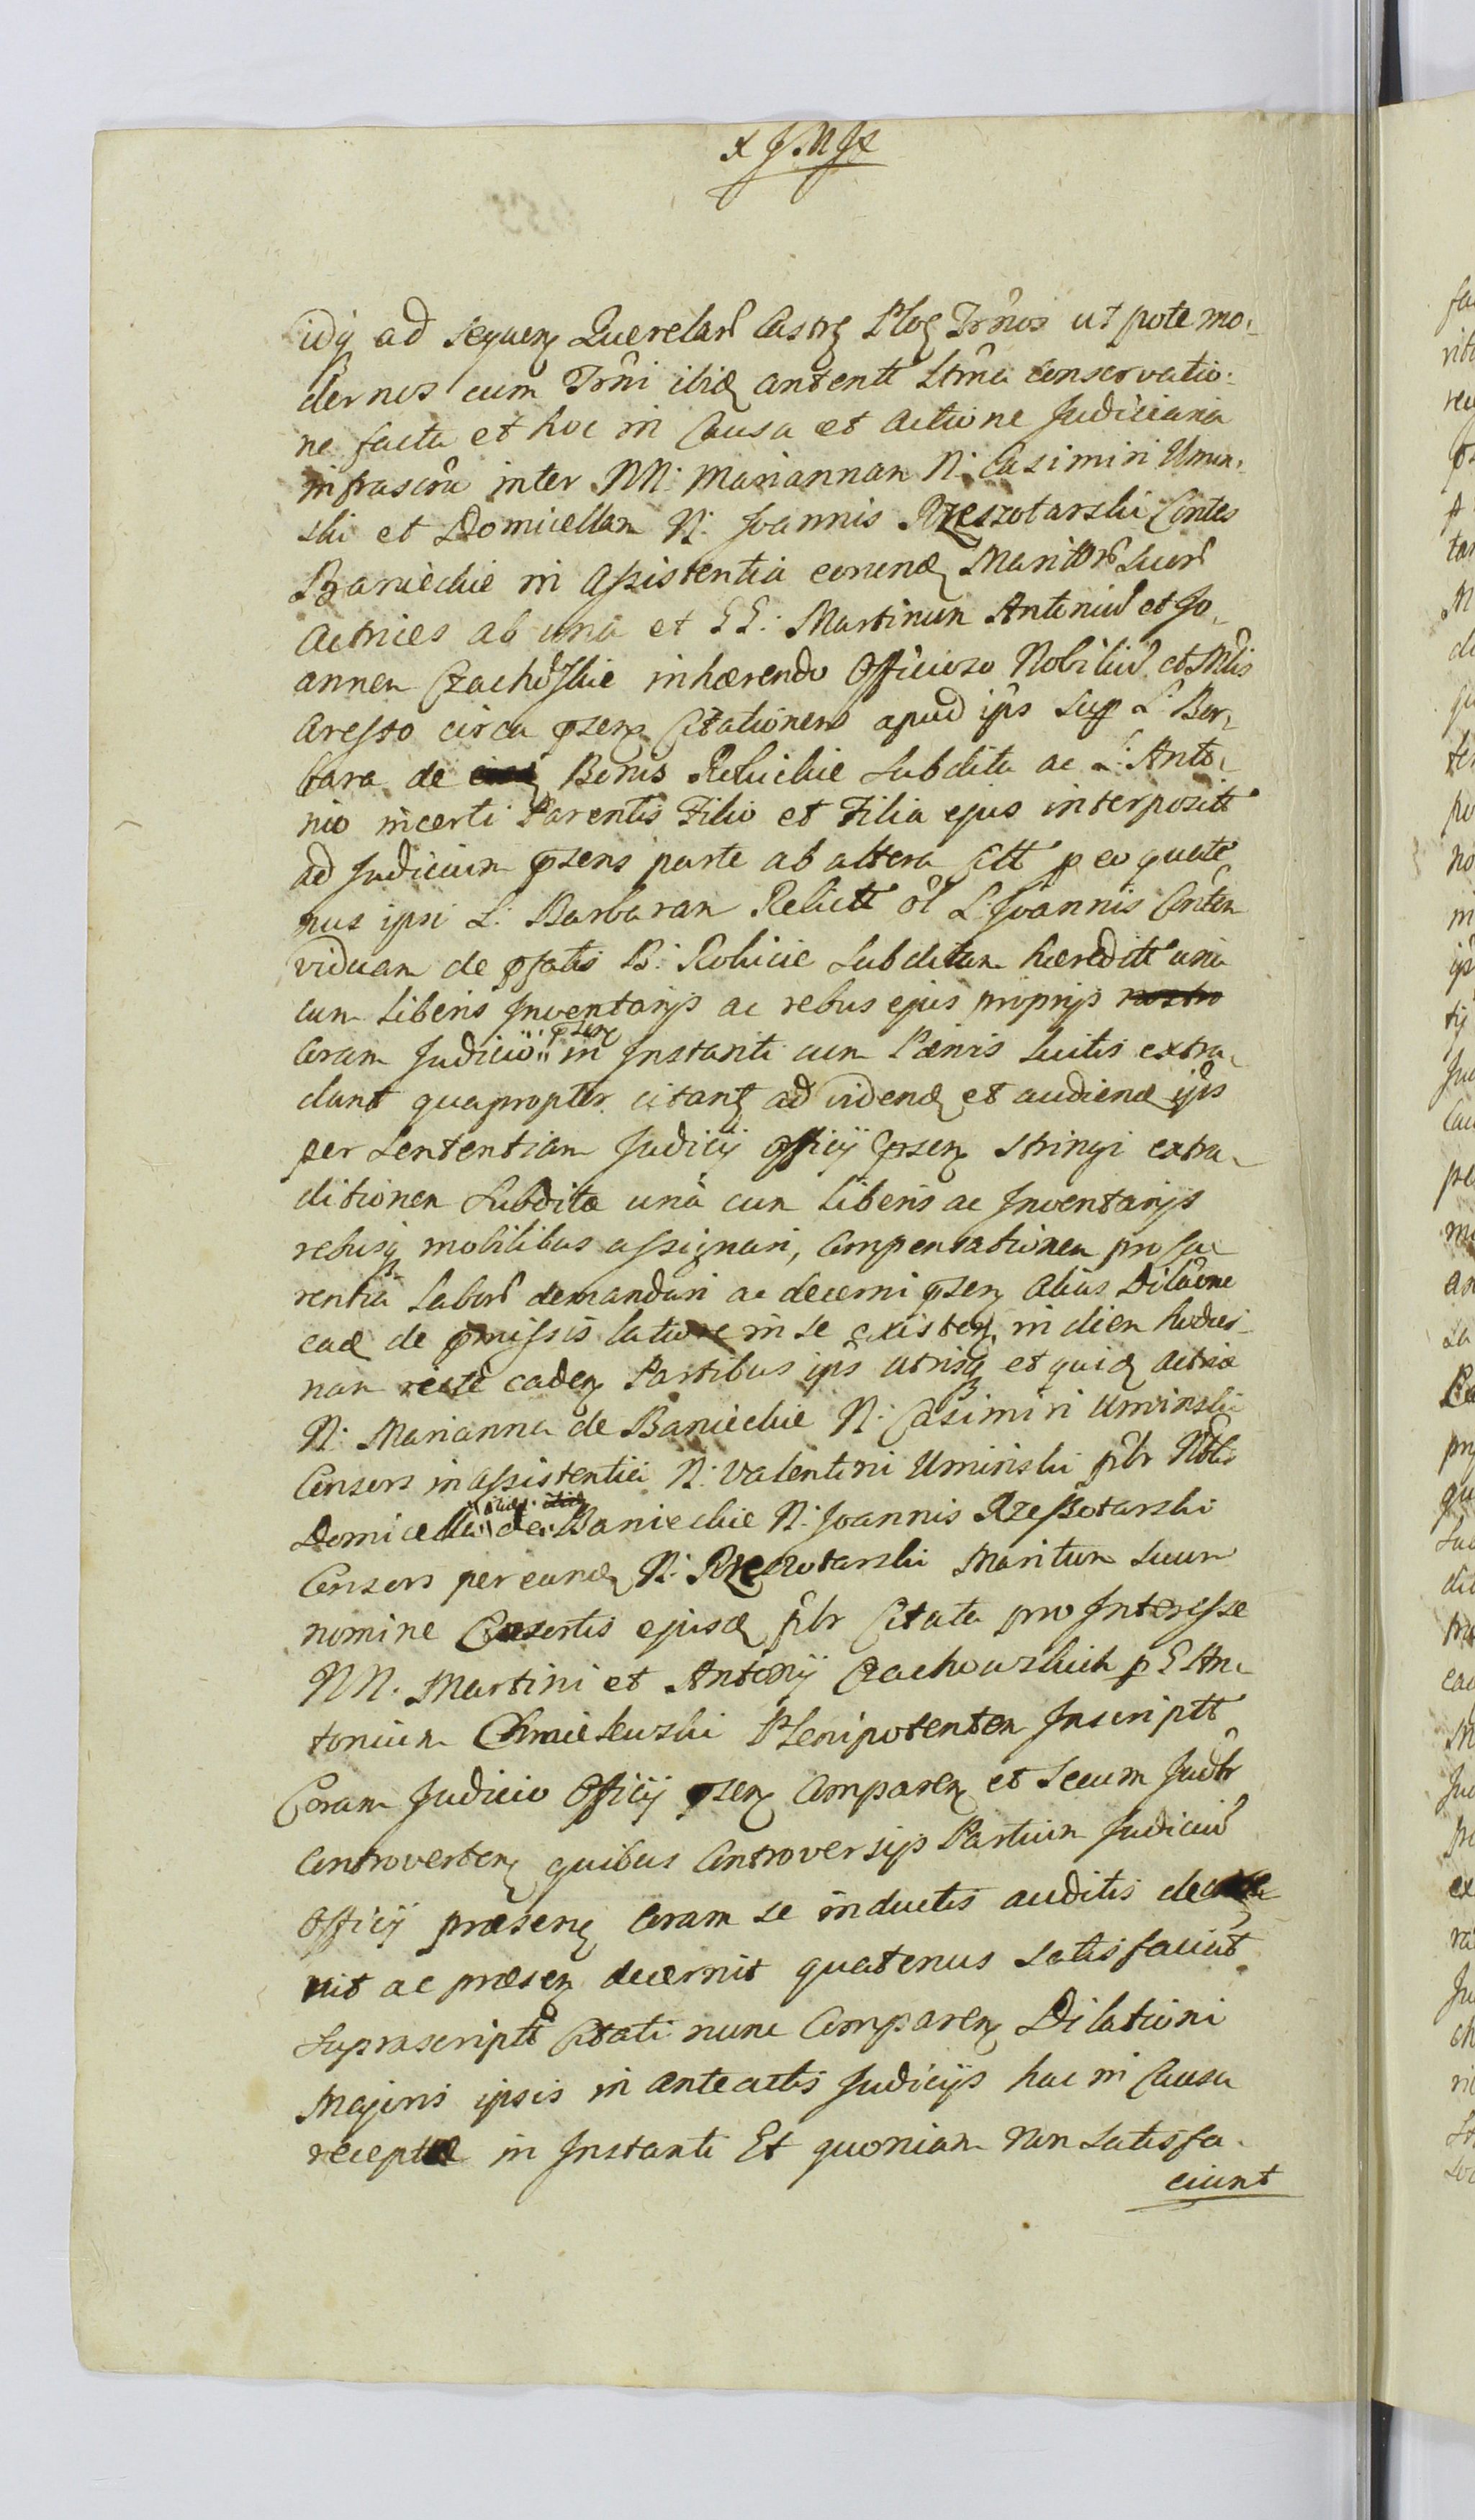 idq ad sequen Querelar̃ Castr Ploc Trm̃os ut pote mo-
dernos cum Trm̃i ibid antentt Ltm̃a conservatio-
ne facta et hoc in Causa et Actione Judiciaria
infrascr̃a inter NN: Mariannan N: Casimiri Umin-
ski et Domicellan N: Joannis Rzeszotarski Contes
Banieckie in Assistentia eorund Maritor̃ Suor̃
Actrices ab una et GG: Martinum Antoniũ et Jo-
annen Czachõskie inhærendo Officioso Nobiliũ et
Aresto circa psen Citationem apud ips Sup L: Bar-
bara de Bonis Rohickie Subdita ac L: Anto-
nio incerti Parentis Filio et Filia ejus interpositt
ad Judicium psens parte ab altera Citt p eo quate-
nus ipsi L: Barbaran Relictt ol L: Joannis
viduan de psatis B: Rohicie Subditan hæreditt una
cum Liberis Inventarijs ac rebus ejus proprijs nostro
Coram Judicio psen in Instanti cum Pænis Luitis extra-
dant quapropter citant ad videnđ et audienđ ips
per Sententiam Judicij Officij psen stringi extra-
ditionen Subditæ unà cum Liberis ac Inventarijs
rebusq mobilibus assignari, Compensationen pro
rentia Labor̃ demandari ac decerni psen alias Dilãone
eađ de pmissis latione in se existen in dien hodier-
nan recte caden Partibus ips utrisq et quiđ Actriæ
N: Marianna de Banieckie N: Casimiri Uminski
Consors in assistentia N: Valentini Uminski ptr
Domicella itidẽ de Banieckie N: Joannis Rzeszotarski
Consors per eunđ N: Rzeszotarski Maritum Suum
nomine Consortis ejusđ ptr Citata pro Interesse
NN. Martini et Antonij Czachowskich p G An-
tonium Chmielewski Plenipotenten Inscriptt
Coram Judicio Officij psen Comparen et Secum Judtr
Controverten quibus Controversijs Partium Judiciũ
Officij præsen Coram se inductis auditis decre-
vit ac præsen decernit quatenus Satisfaciat
Suprascriptt Citati nunc Comparen Dilationi
Majoris ipsis in anteactis Judicijs hac in Causa
receptæ in Instanti Et quoniam non Satisfa-
ciunt